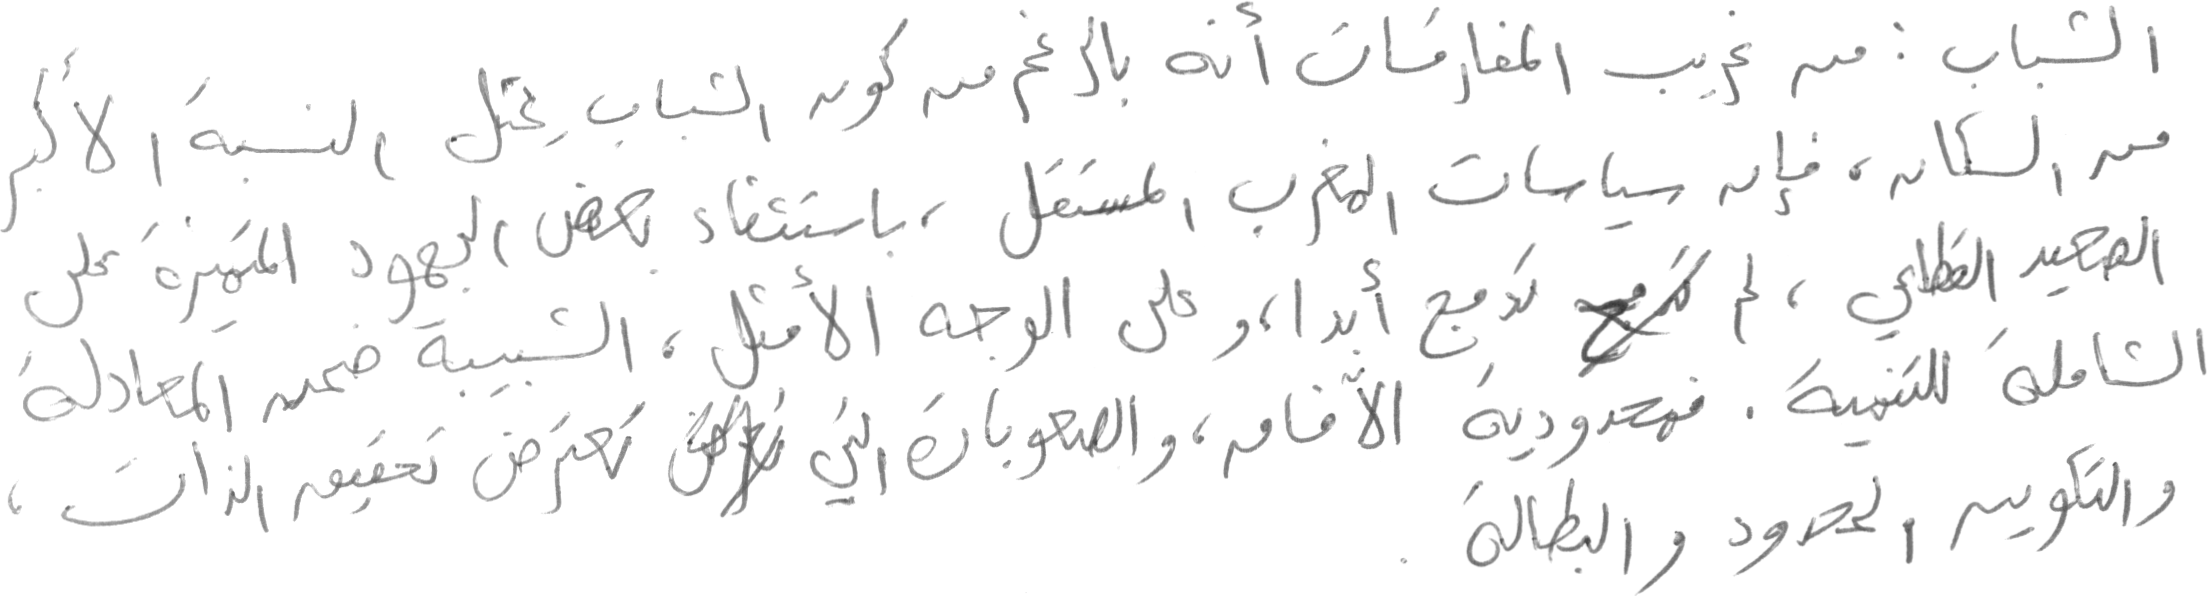 الشباب : من غريب المفارقات أنه بالرغم من كون الشباب يمثل النسبة الأكبر
من السكان ، فإن سياسات المغرب المستقل ، باستثناء بعض الجهود المتميزة على
الصعيد القطاعي ، لم تدمج أبدا ، وعلى الوجه الأمثل ، الشبيبة ضمن المعادلة
الشاملة للتنمية . فمحدودية الآفاق ، والصعوبات التي تعترض تحقيق الذات ،
والتكوين المحدود والبطالة .